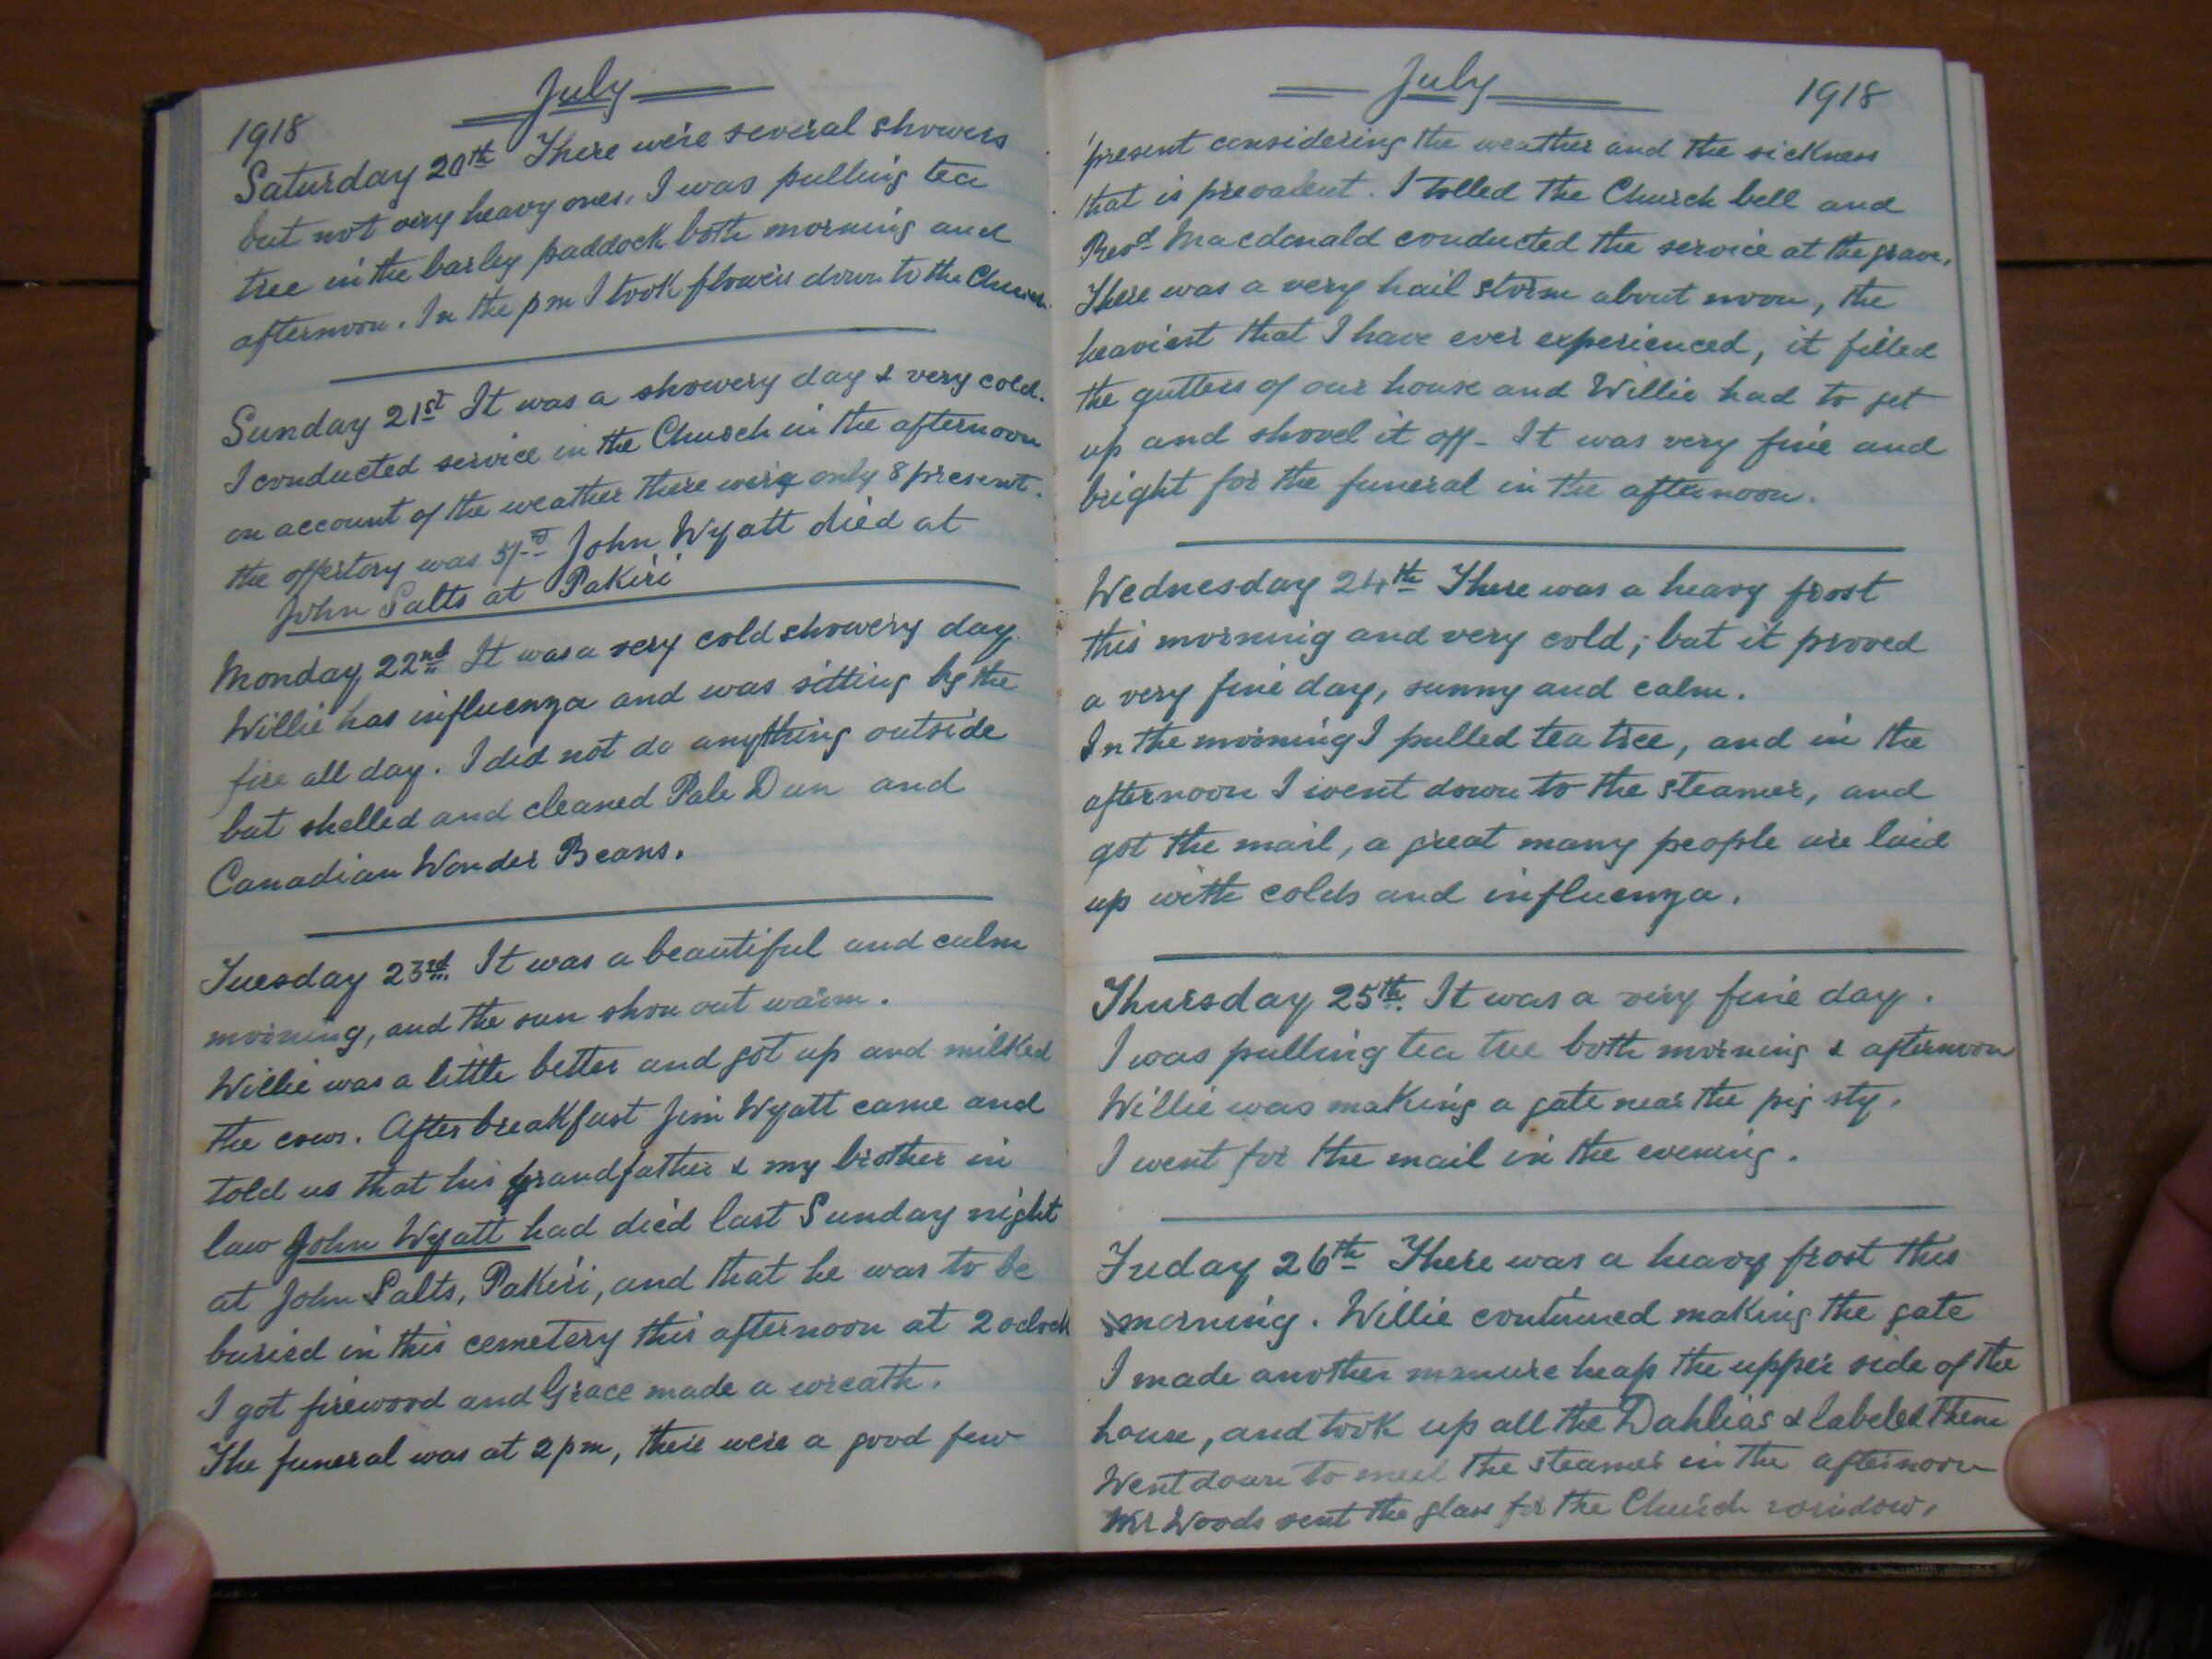 July
1918
Saturday 20th There were several showers
but not very heavy ones. I was pulling tea
tree in the barley paddock both morning and
afternoon. In the pm I took flowers down to the Church.
Sunday 21st It was a showery day & very cold.
I conducted service in the Church in the afternoon
on account of the weather there were only 8 present.
the offertory was John Wyatt died at
John Salts at Pakiri
Monday 22nd It was a very cold showery day.
Willie has influenza and was sitting by the
fire all day. I did not do anything outside
but shelled and cleaned Pale Dun and
Canadian Wonder Beans.
Tuesday 23rd. It was a beautiful and calm
morning, and the sun shon out warm.
Willie was a little better and got up and milked
the cows. After breakfast Jim Wyatt came and
told us that his grandfather & my brother in
law John Wyatt had died last Sunday night
at John Salts, Pakiri, and that he was to be
buried in this cemetery this afternoon at 2 oclock
I got firewood and Grace made a wreath.
The funeral was at 2 pm, there were a good few
July
1918
present considering the weather and the sickness
that is prevalent. I tolled the Church bell and
Revd Macdonald conducted the service at the grave.
There was a very hail storm about noon, the
heaviest that I have ever experienced, it filled
the gutters of our house and Willie had to get
up and shovel it off - It was very fine and
bright for the funeral in the afternoon.
Wednesday 24th There was a heavy frost
this morning and very cold; but it proved
a very fine day, sunny and calm.
In the morning I pulled tea tree, and in the
afternoon I went down to the steamer, and
got the mail, a great many people are laid
up with colds and influenza.
Thursday 25th. It was a very fine day.
I was pulling tea tree both morning & afternoon
Willie was making a gate near the pig sty.
I went for the mail in the evening.
Friday 26th There was a heavy frost this
morning. Willie continued making the gate
I made another manure heap the upper side of the
house, and took up all the Dahlias & labeled them
Went down to meet the steamer in the afternoon
Mr Woods sent the glass for the Church window.